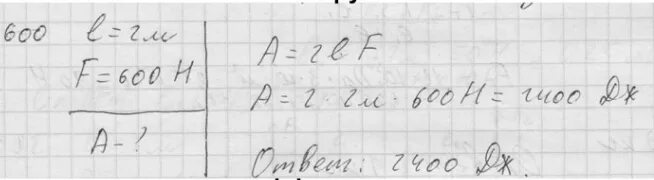 600 l = 2м
F = 600 Н
A - ?
A = 2lF
A = 2 · 2м · 600Н = 2400 Дж
Ответ: 2400 Дж.